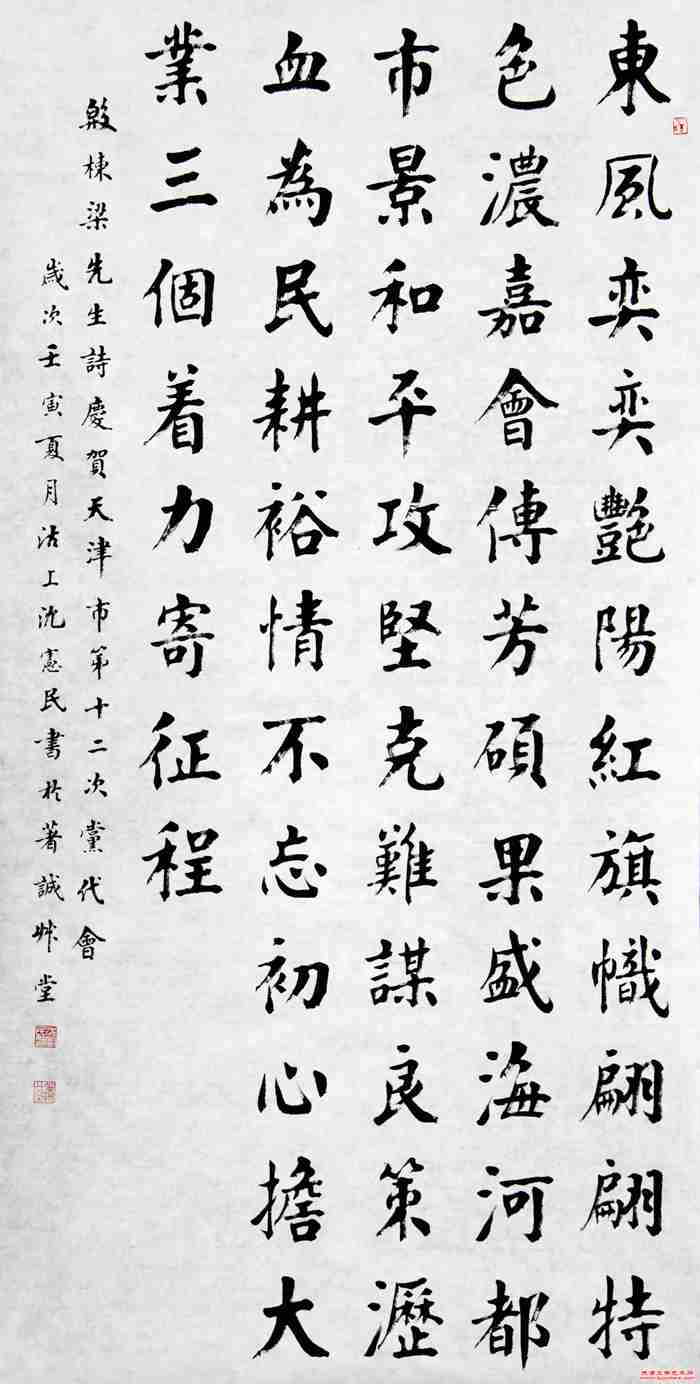 東風奕奕艷陽紅旗幟翩翩特
色濃嘉會傳芳碩果盛海河都
市景和平攻堅克難謀良策瀝
血為民耕裕情不忘初心擔大
業三個着力寄征程
殷棟梁先生詩慶賀天津市第十二次黨代會
歲次壬寅夏月沽上沈憲民書於著誠艸堂